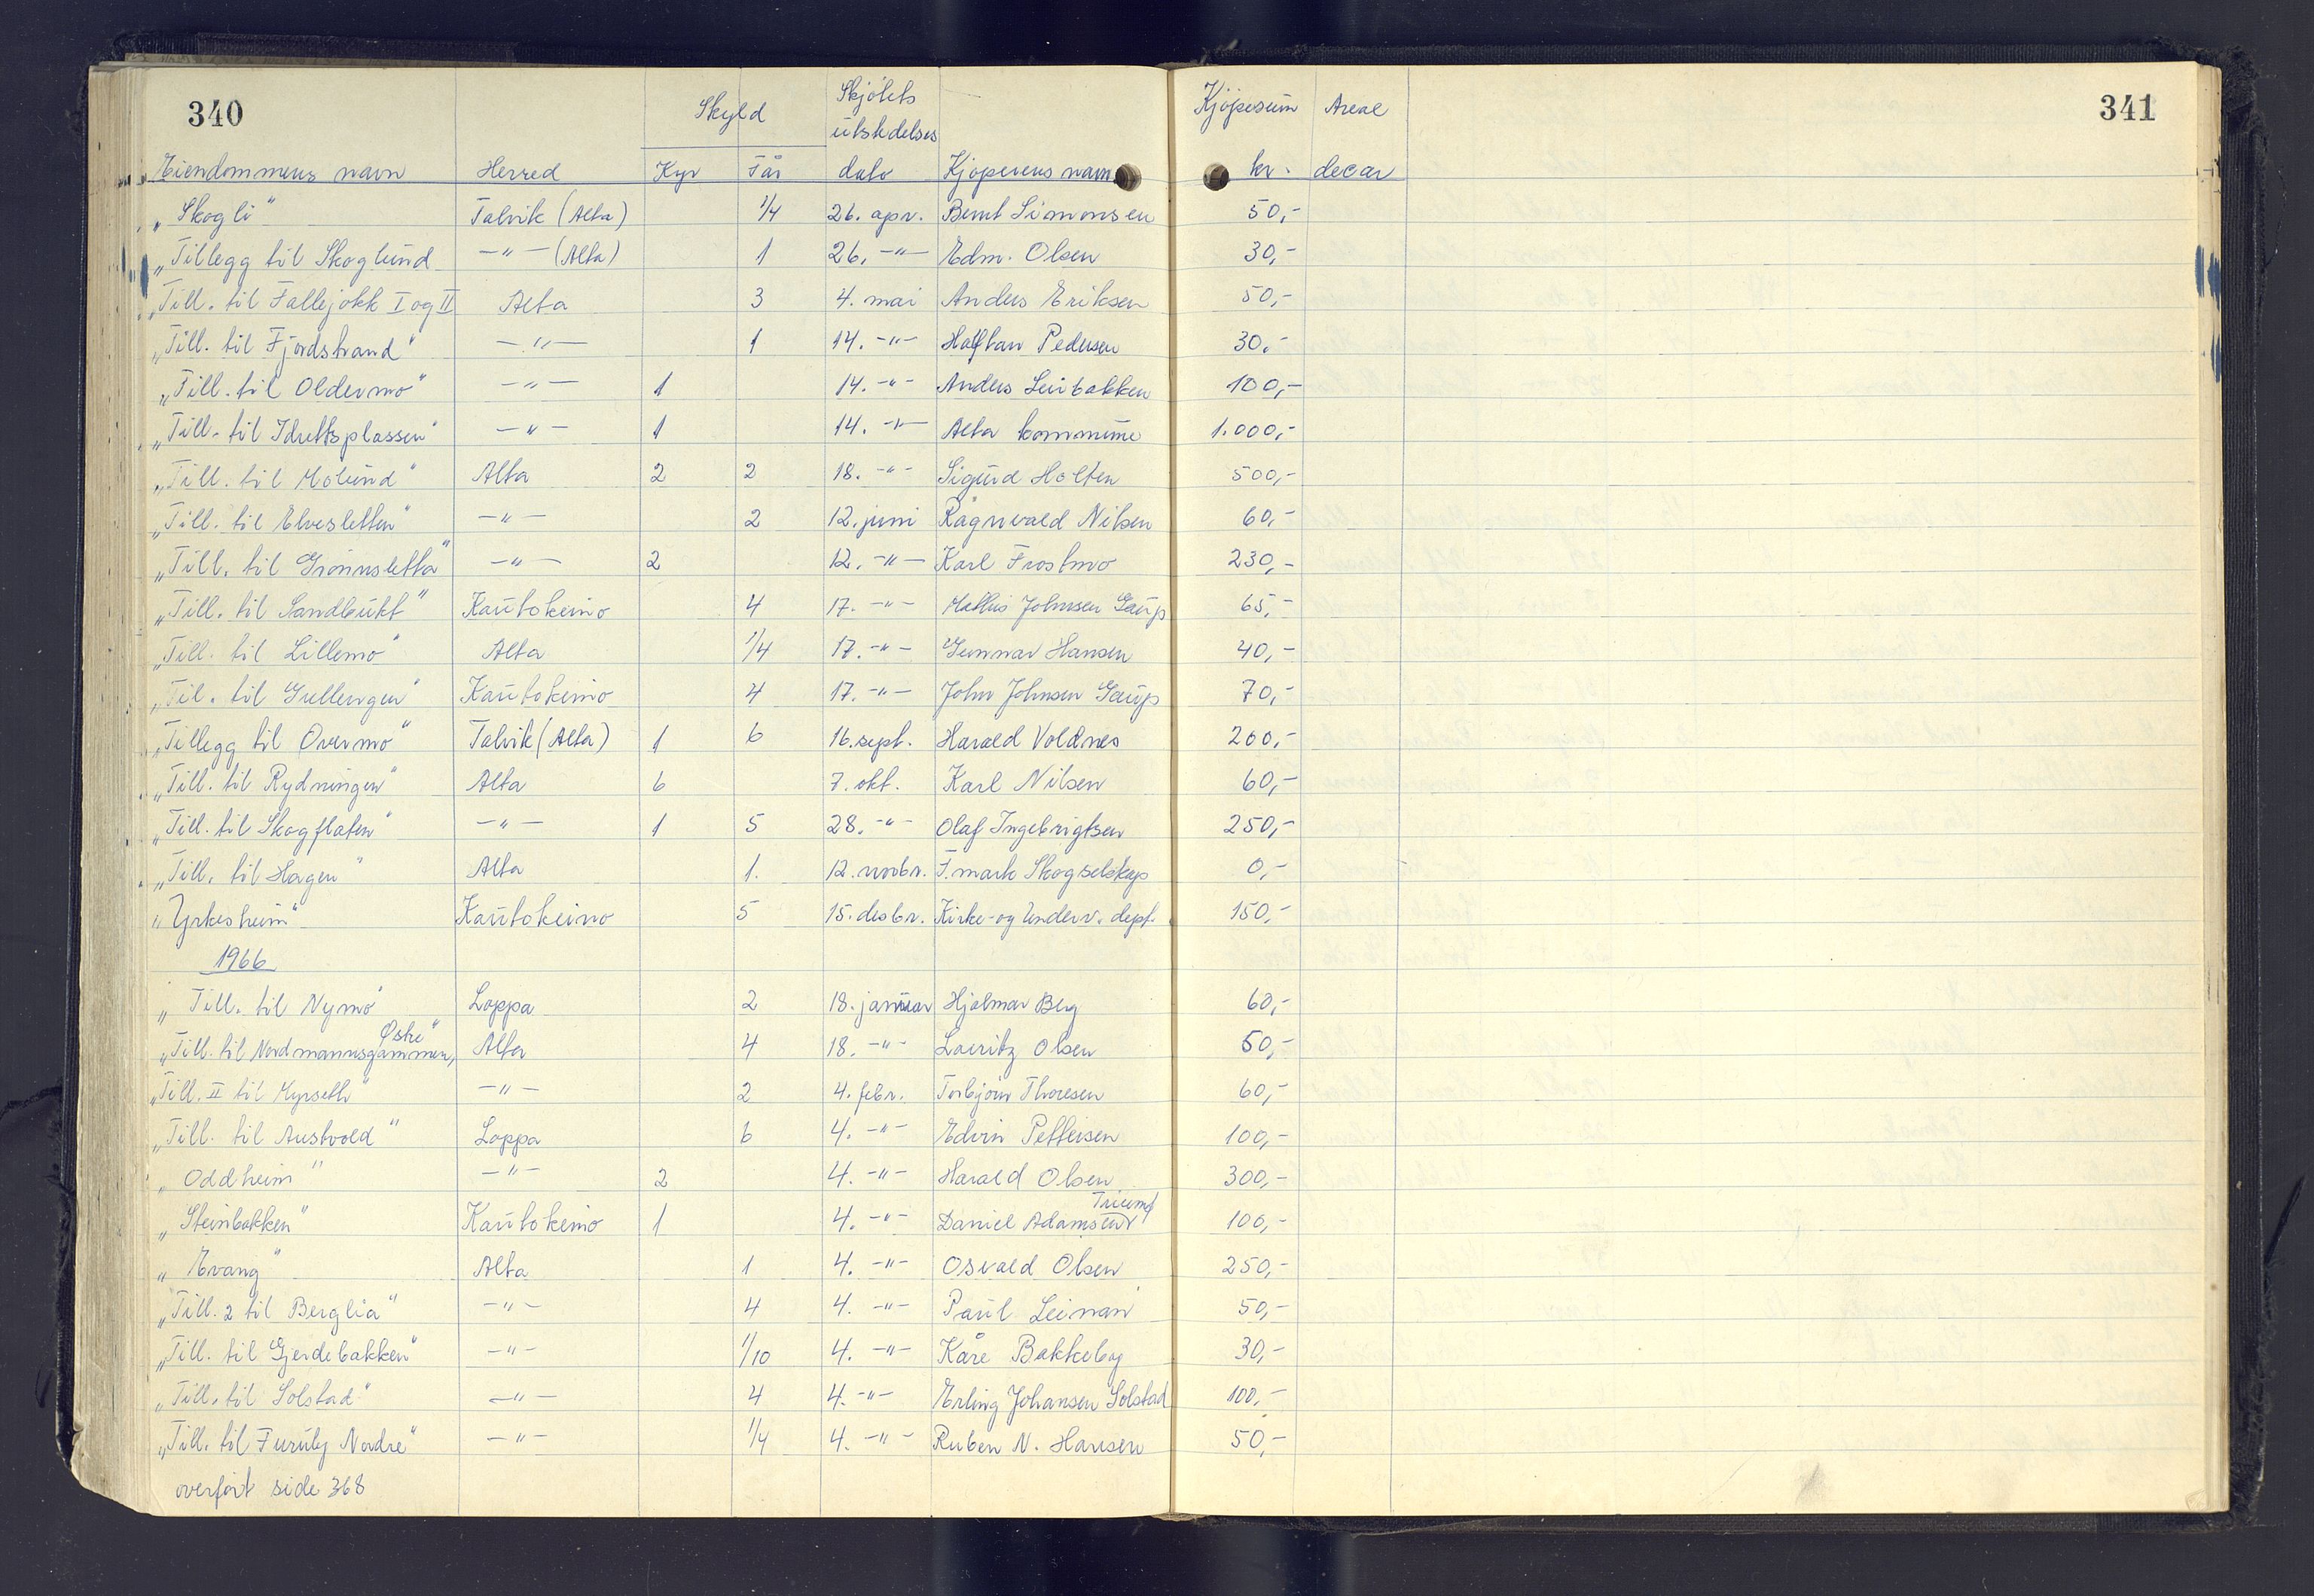 340 341
Skyld Skjötets Kjöpesum Areal
utstedelses
Eiendommens navn Herred Kyr Får dato Kjöperens navn kr. decar
„Skogli" Talvik (Alta) 1/4 26. apr. Bernt Simonsen 50,-
„Tillegg til Skoglund —"— (Alta) 1 26. —"— Edm. Olsen 30,-
„Till. til Fallejokk I og II Alta 3 4. mai Anders Eriksen 50,-
„Till. til Fjordstrand" —"— 1 14. -"- Halftan Pedersen 30,-
„Till. til Oldermo" —"— 1 14. -"- Anders Leirbakken 100,-
„Till. til Idrettsplassen" —"— 1 14. -"- Alta kommune 1.000,-
„Till. til Molund" Alta 2 2 18. -"- Sigurd Holten 500,-
„Till. til Elvesletten" —"— 2 12. juni Ragnvald Nilsen 60,-
„Till. til Grönnsletta" —"— 2 12. -"- Karl Frostmo 230,-
„Till. til Sandbukt" Kautokeino 4 17. -"- Mathis Johnsen Gaup 65,-
„Till. til Lillemo" Alta 1/4 17. -"- Gunnar Hansen 40,-
„Til. til Gullengen" Kautokeino 4 17. -"- John Johnsen Gaup 70,-
„Tillegg til Övermo" Talvik (Alta) 1 6 16. sept. Harald Voldnes 200,-
„Till. til Rydningen" Alta 6 7. okt. Karl Nilsen 60,-
„Till. til Skogflaten" —"— 1 5 28. -"- Olaf Ingebrigtsen 250,-
„Till. til Hagen" Alta 1. 12. novbr. F.mark Skogselskap 0,-
„Yrkesheim" Kautokeino 5 15. desbr. Kirke- og Underv. dept. 150,-
1966
„Till. til Nymo" Loppa 2 18. januar Hjalmar Berg 60,-
„Till. til Nordmannsgammen, Østre" Alta 4 18. -"- Lauritz Olsen 50,-
„Till. II til Myrseth" —"— 2 4. febr. Torbjörn Thoresen 60,-
„Till. til Austvold" Loppa 6 4. -"- Edvin Pettersen 100,-
„Oddheim" —"— 2 4. -"- Harald Olsen 300,-
„Steinbakken" Kautokeino 1 4. -"- Daniel Adamsen Triumf 100,-
„Evang" Alta 1 4. -"- Osvald Olsen 250,-
„Till. 2 til Berglia" —"— 4 4. -"- Paul Leinan 50,-
„Till. til Gjerdebakken" —"— 1/10 4. -"- Kåre Bakkeby 30,-
„Till. til Solstad" —"— 4 4. -"- Erling Johansen Solstad 100,-
„Till. til Furuly Nordre" —"— 1/4 4. -"- Ruben N. Hansen 50,-
overfört side 368